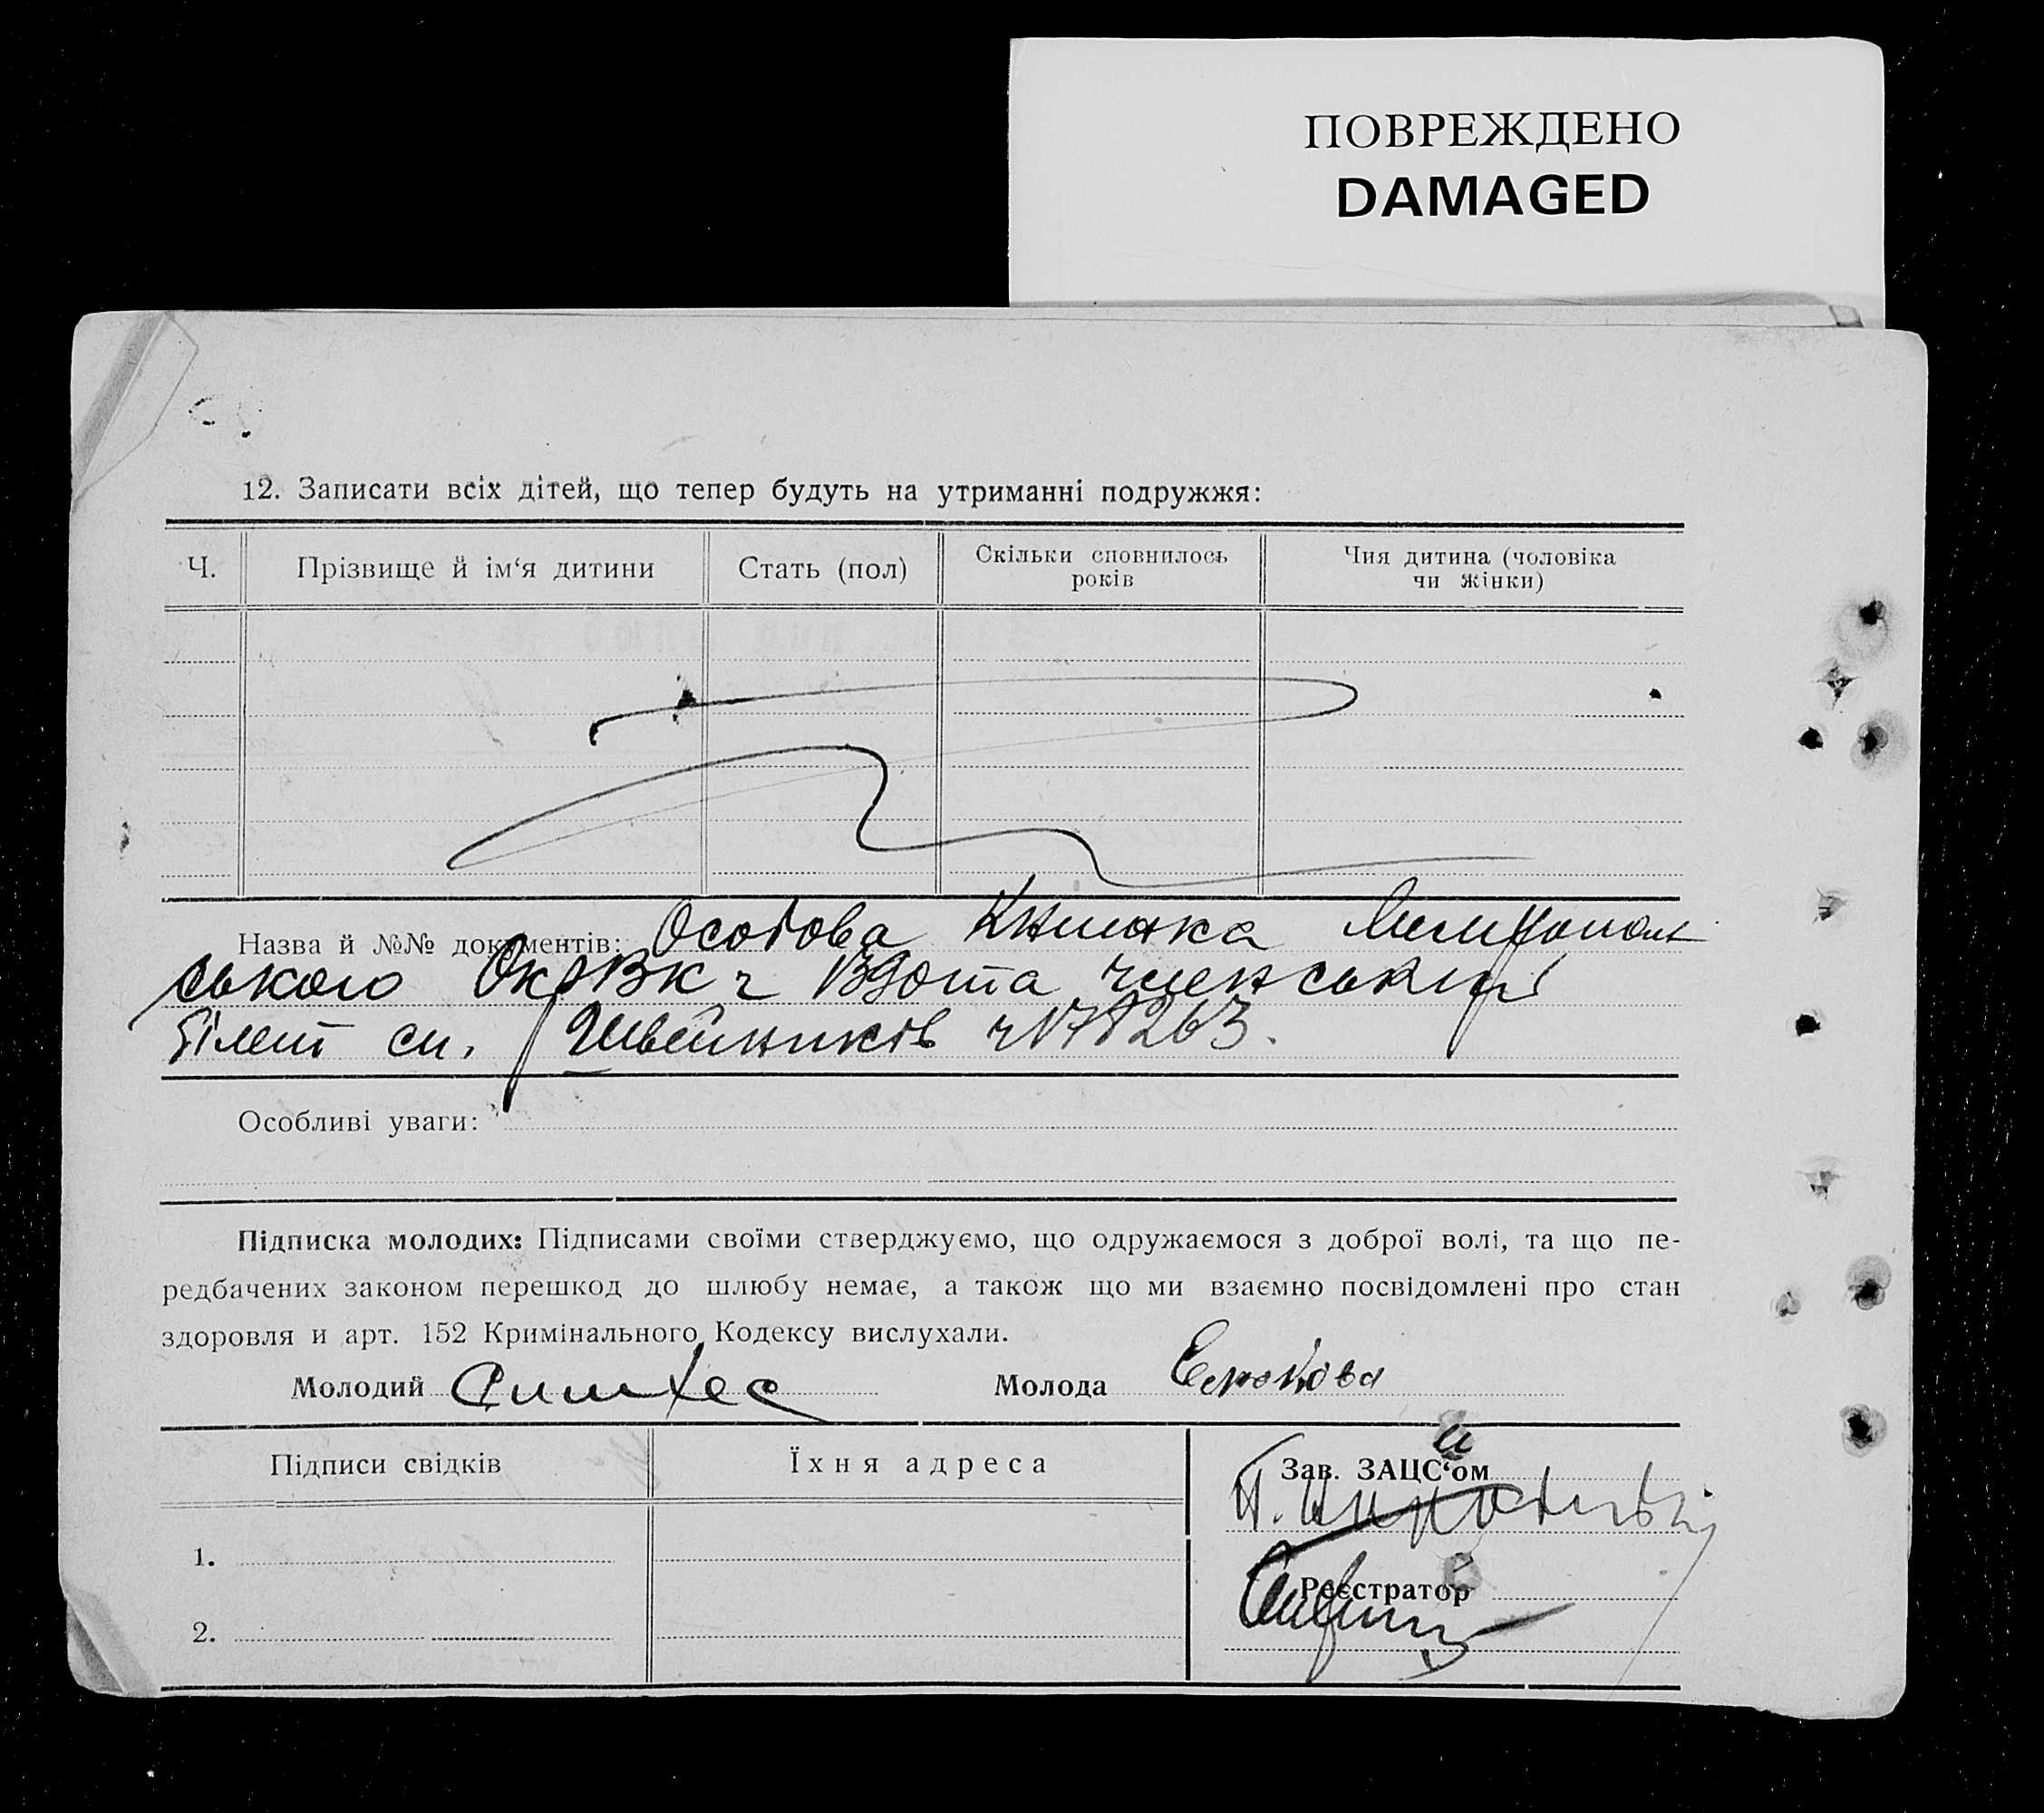 ПОВРЕЖДЕНО
DAMAGED
12. Записати всіх дітей, що тепер будуть на утриманні подружжя:
Ч. Прізвище й ім‘я дитини Стать (пол) Скільки сповнилось років Чия дитина (чоловіка чи жінки)
Назва й №№ документів: Особова Книжка Мелітополь
ського ОкрВК членський
білет сп. Швейників
Особливі уваги:
Підписка молодих: Підписами своїми стверджуємо, що одружаємося з доброї волі, та що пе-
редбачених законом перешкод до шлюбу немає, а також що ми взаємно посвідомлені про стан
здоровля и арт. 152 Кримінального Кодексу вислухали.
Молодий Молода
Підписи свідків Їхня адреса Зав. ЗАЦС‘ом
1.
Реєстратор
2.